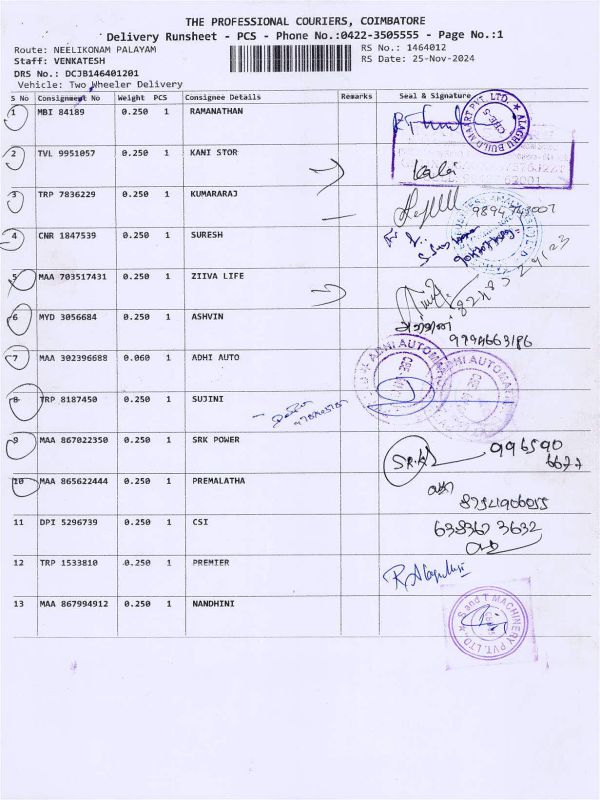 THE PROFESSIONAL COURIERS, COIMBATORE
Delivery Runsheet - PCS - Phone No.:0422-3505555 - Page No.:1
Route: NEELIKONAM PALAYAM RS No.: 1464012
Staff: VENKATESH RS Date: 25-Nov-2024
DRS No.: DCJB146401201
Vehicle: Two Wheeler Delivery
S No Consignment No Weight PCS Consignee Details Remarks Seal & Signature
1 MBI 84189 0.250 1 RAMANATHAN
ALAGHU BUILD MAART PVT. LTD. ★ CBE-5
2 TVL 9951057 0.250 1 KANI STOR
3 TRP 7836229 0.250 1 KUMARARAJ
4 CNR 1847539 0.250 1 SURESH
5 MAA 703517431 0.250 1 ZIIVA LIFE
6 MYD 3056684 0.250 1 ASHVIN
7 MAA 302396688 0.060 1 ADHI AUTO
ADHI AUTOMA
8 TRP 8187450 0.250 1 SUJINI
9 MAA 867022350 0.250 1 SRK POWER
996590
6677
10 MAA 865622444 0.250 1 PREMALATHA
11 DPI 5296739 0.250 1 CSI
638367 3632
12 TRP 1533810 0.250 1 PREMIER
13 MAA 867994912 0.250 1 NANDHINI
S and T MACHINERY PVT. LTD.